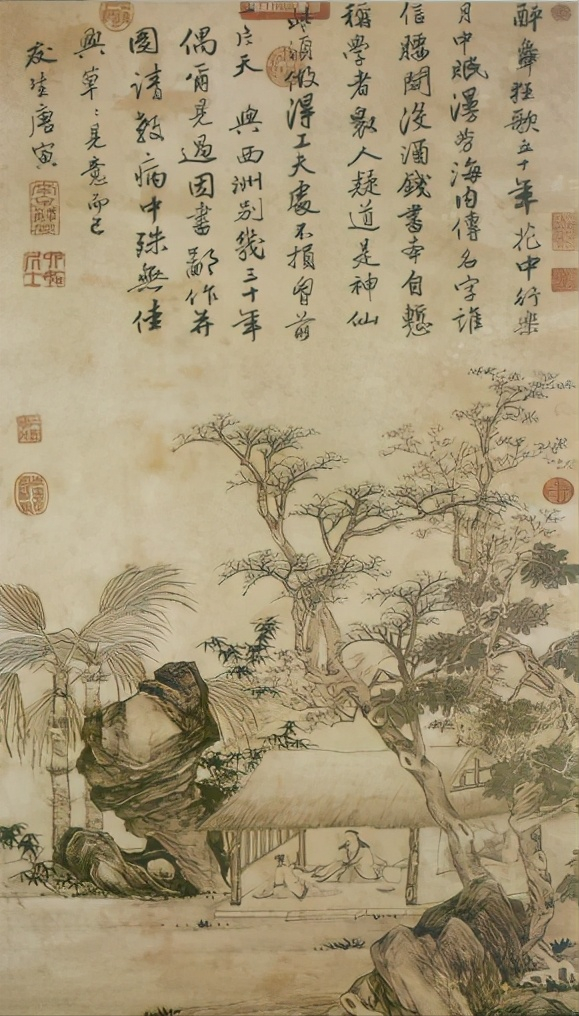 醉舞狂歌五十年花中行樂
月中眠漫勞海內傳名字誰
信腰間沒酒錢書本自慙
稱學者眾人疑道是神仙
些須做得工夫處不損胸前
片天 與西洲別幾三十年
偶爾見過因書鄙作并
圖請教病中殊無佳
興草〻見意而已
友生唐寅
南京解元
六如居士